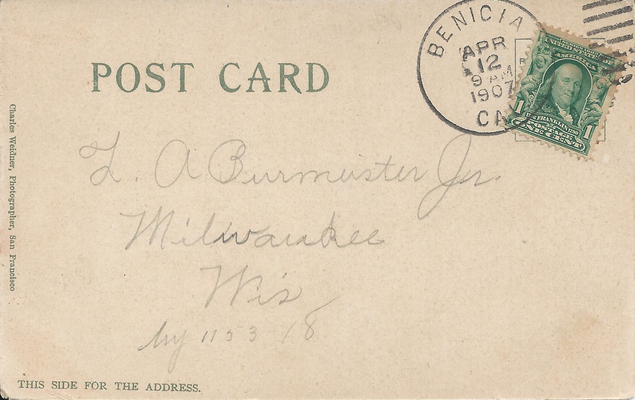 POST CARD
BENICIA
APR
12
9 AM
1907
CAL
1 1
FRANKLIN
POSTAGE
ONE CENT
L. A Burmeister Jr.
Milwaukee
Wis
1153 - 18
Charles Weidner, Photographer, San Francisco
THIS SIDE FOR THE ADDRESS.